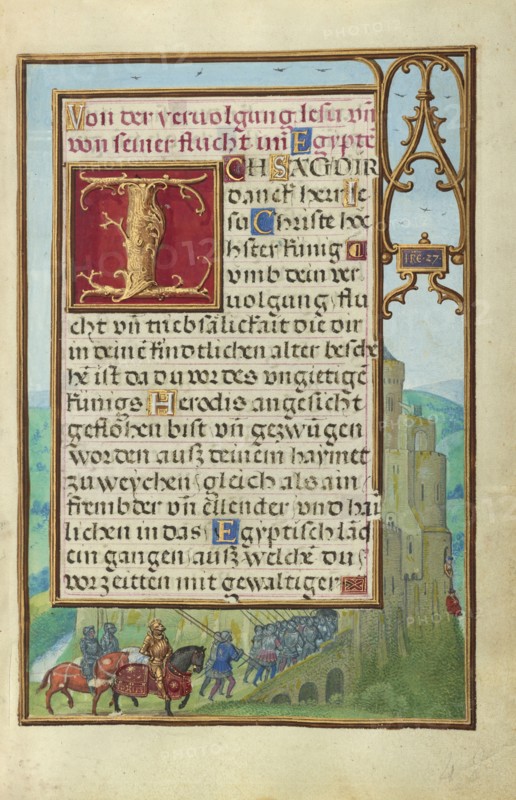 Von der vervolgung Iesu vn̄
von seiner flucht im̄ Egyptē
ICH SAG DIR
danck herr Ie
su Christe hoe
hster kunig
vmb dein ver
uolgung flu
cht vn̄ trüebsälickait die dir
in deinē kindtlichen alter besche
hē ist da du vor des vngietigē
kunigs Herodis angesicht
geflohen bist vn̄ gezwūgen
worden ausz deinem haymet
zu weychen gleich als ain
frembder vn̄ ellender vnd hai
lichen in das Egyptisch lād
ein gangen ausz welchē du
vor zeitten mit gewaltiger
PHOTO12